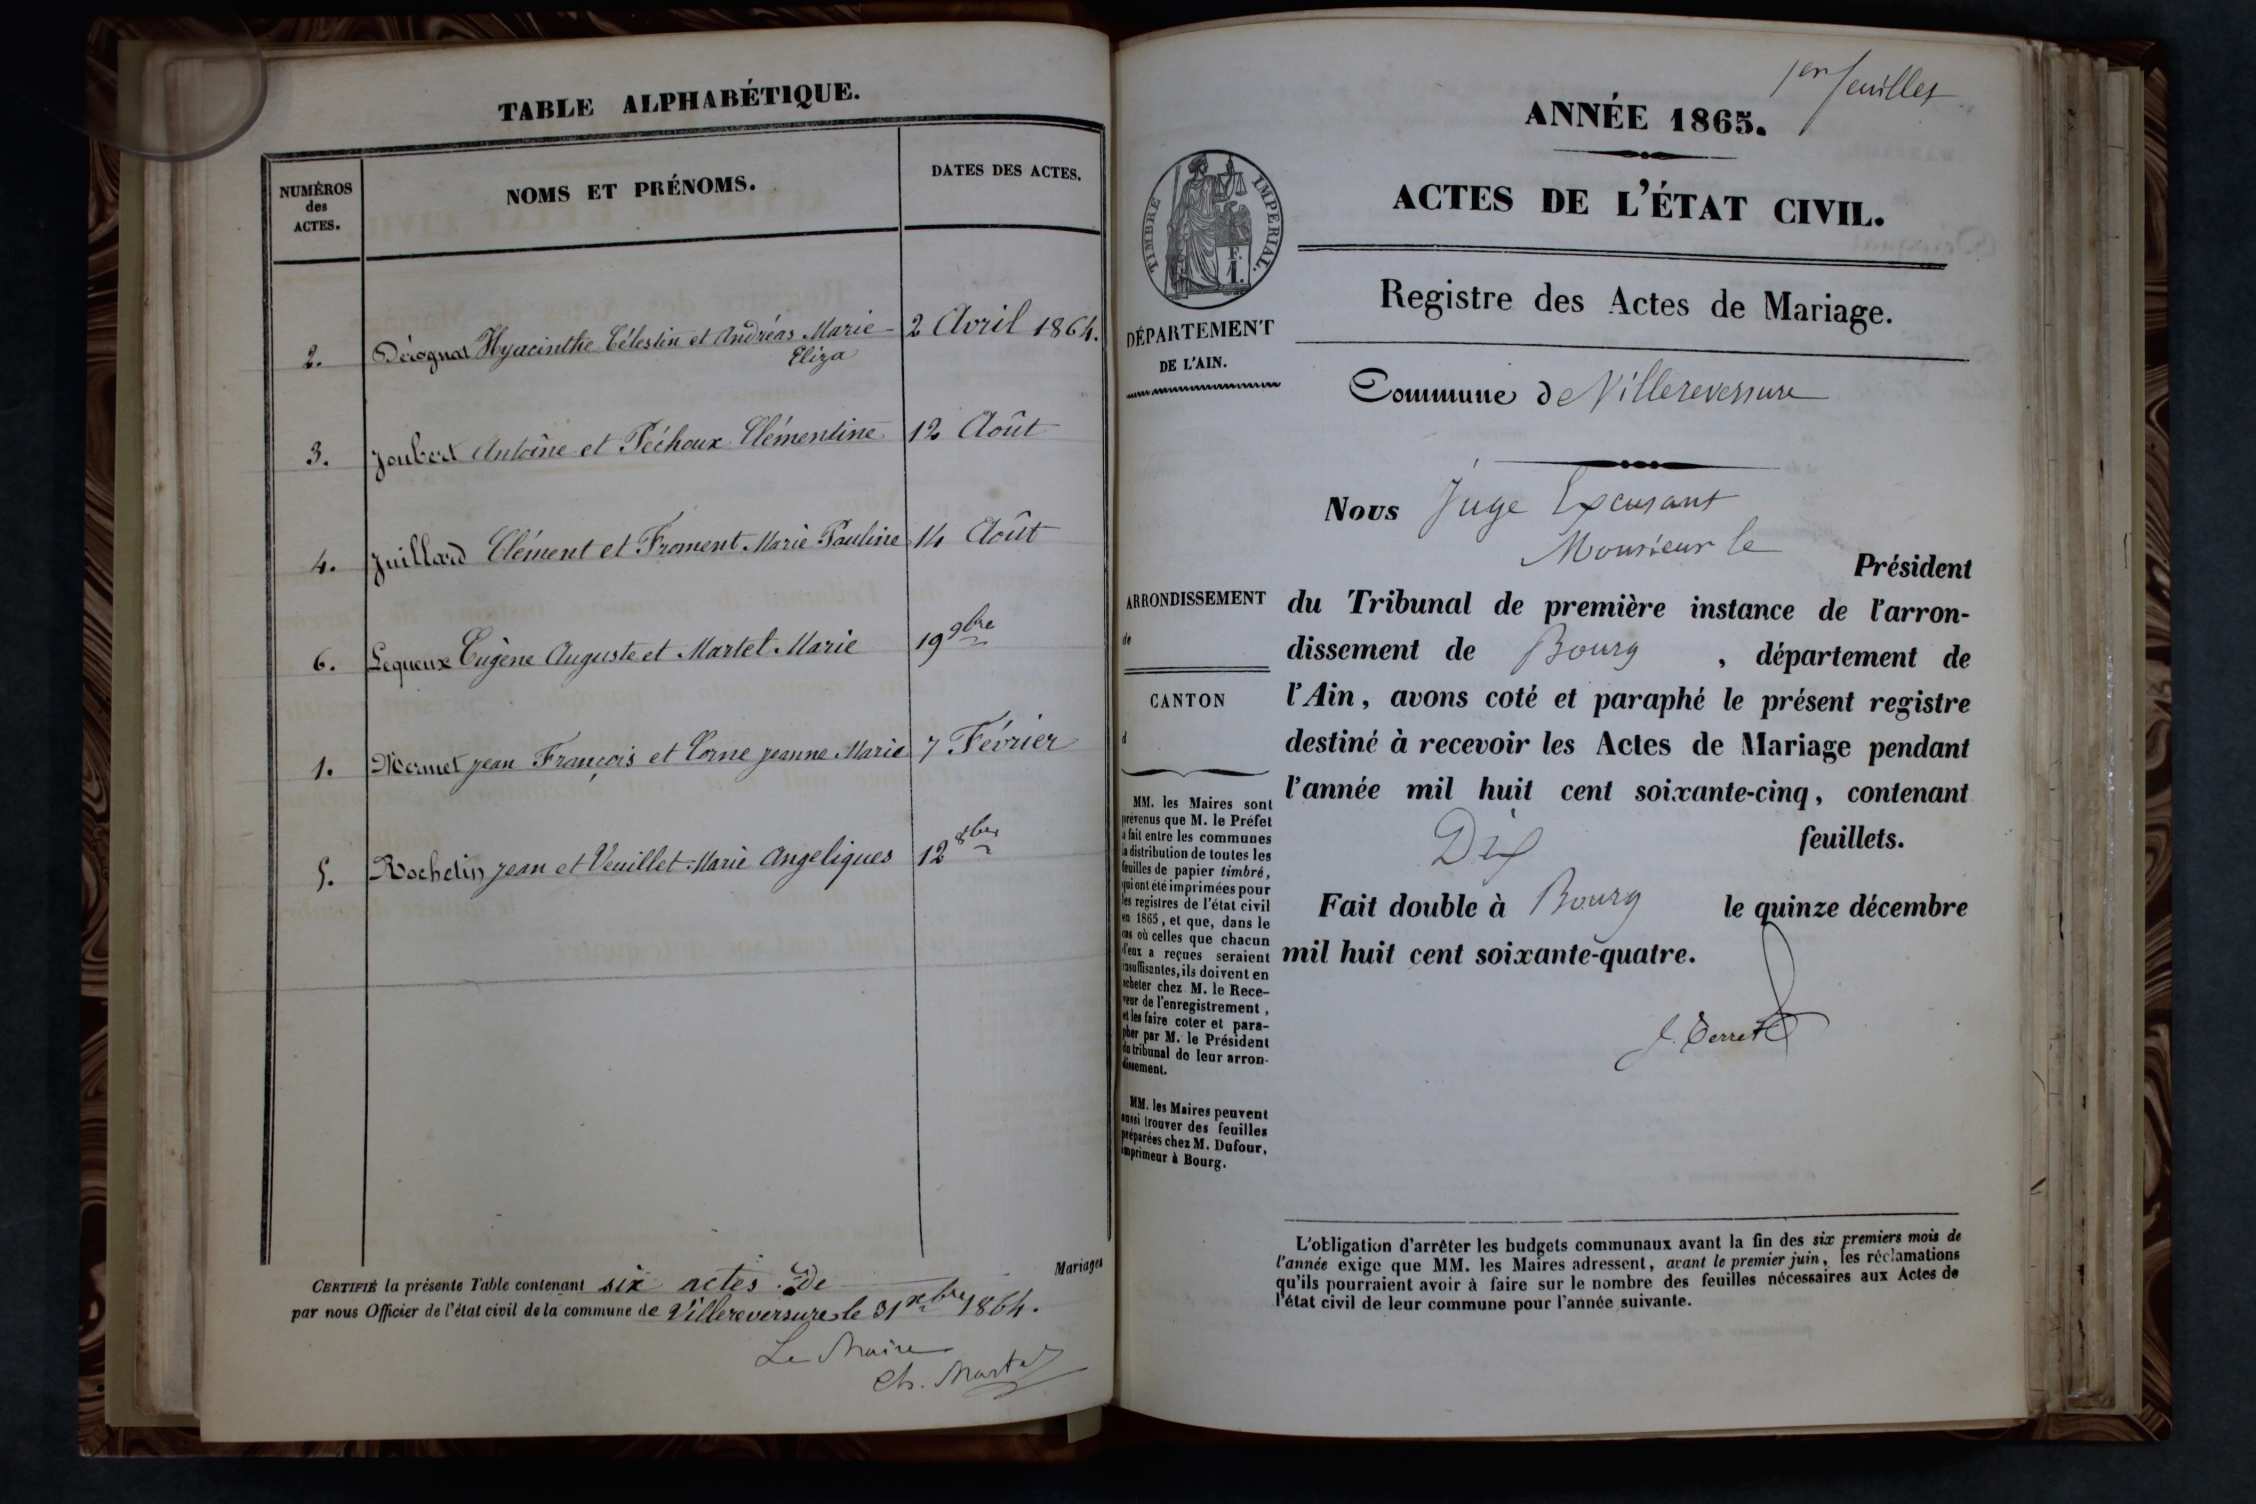 TABLE ALPHABÉTIQUE.
NUMÉROS
des
ACTES.
NOMS ET PRÉNOMS.
DATES DES ACTES.
2. Dérognat Hyacinthe Célestin et Andréas Marie 2 Avril 1864.
Eliza
3. Joubert Antoine et Péchoux Clémentine 12 Août
4. Juillard Clément et Froment Marie Pauline 14 Août
6. Lequeux Eugène Auguste et Martel Marie 19 9bre
1. Mermet jean François et Corne jeanne Marie 7 Février
5. Rochetin jean et Veuillet Marie Angeliques 12 8bre
Mariages
CERTIFIÉ la présente Table contenant six actes de
par nous Officier de l'état civil de la commune de Villereversure le 31 xbre 1864.
Le Maire
Ch. Martel
1er feuillet
ANNÉE 1865.
ACTES DE L'ÉTAT CIVIL.
TIMBRE IMPERIAL.
F.
I.
Registre des Actes de Mariage.
DÉPARTEMENT
DE L'AIN.
Commune de Villereversure
Nous Juge Excusant
Monsieur le
Président
du Tribunal de première instance de l'arron-
dissement de Bourg, département de
l'Ain, avons coté et paraphé le présent registre
destiné à recevoir les Actes de Mariage pendant
l'année mil huit cent soixante-cinq, contenant
Dix feuillets.
Fait double à Bourg le quinze décembre
mil huit cent soixante-quatre.
ARRONDISSEMENT
de
CANTON
d
MM. les Maires sont
prévenus que M. le Préfet
a fait entre les communes
la distribution de toutes les
feuilles de papier timbré,
qui ont été imprimées pour
les registres de l'état civil
en 1865, et que, dans le
cas où celles que chacun
d'eux a reçues seraient
insuffisantes, ils doivent en
acheter chez M. le Rece-
veur de l'enregistrement,
et les faire coter et para-
pher par M. le Président
du tribunal de leur arron-
dissement.
MM. les Maires peuvent
aussi trouver des feuilles
préparées chez M. Dufour,
imprimeur à Bourg.
L'obligation d'arrêter les budgets communaux avant la fin des six premiers mois de
l'année exige que MM. les Maires adressent, avant le premier juin, les réclamations
qu'ils pourraient avoir à faire sur le nombre des feuilles nécessaires aux Actes de
l'état civil de leur commune pour l'année suivante.